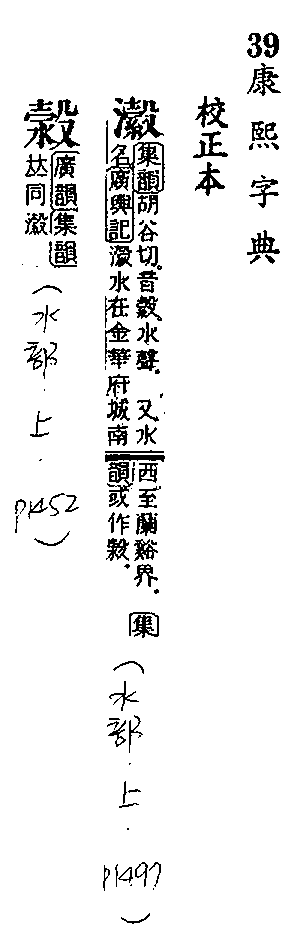 39康熙字典
校正本
瀫
集韻胡谷切。音縠。水聲。又水
名廣輿記瀫水在金華府城南
西至蘭谿界。集
韻或作
(水部.上.P1497)
廣韻集韻
𠀤同瀫
(水部.上.P1452)